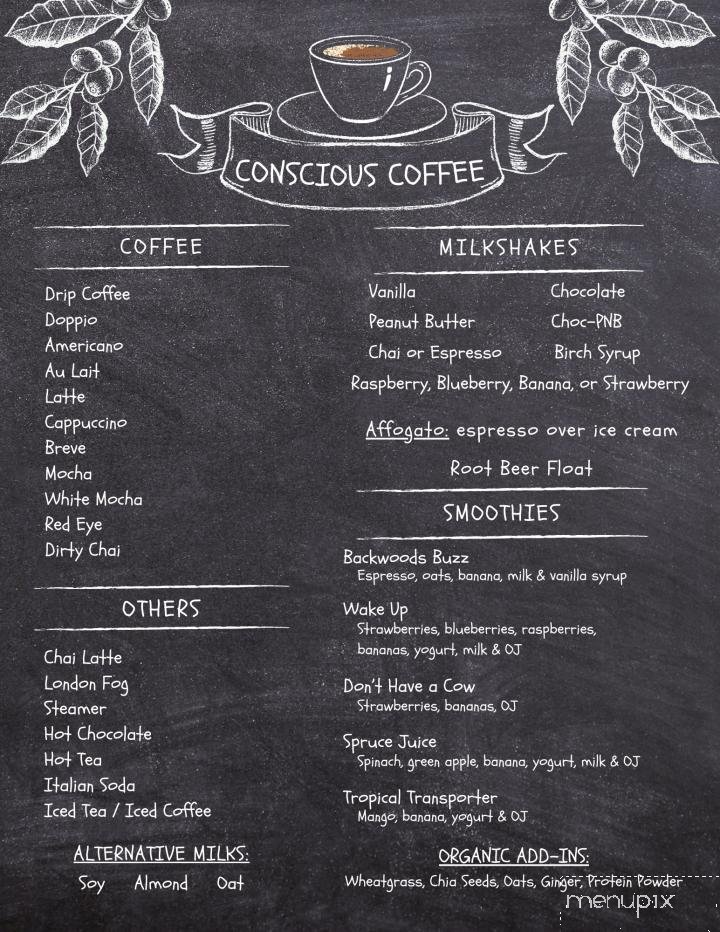 CONSCIOUS COFFEE
COFFEE
Drip Coffee
Doppio
Americano
Au Lait
Latte
Cappuccino
Breve
Mocha
White Mocha
Red Eye
Dirty Chai
OTHERS
Chai Latte
London Fog
Steamer
Hot Chocolate
Hot Tea
Italian Soda
Iced Tea / Iced Coffee
ALTERNATIVE MILKS:
Soy Almond Oat
MILKSHAKES
Vanilla Chocolate
Peanut Butter Choc-PNB
Chai or Espresso Birch Syrup
Raspberry, Blueberry, Banana, or Strawberry
Affogato: espresso over ice cream
Root Beer Float
SMOOTHIES
Backwoods Buzz
Espresso, oats, banana, milk & vanilla syrup
Wake Up
Strawberries, blueberries, raspberries,
bananas, yogurt, milk & OJ
Don't Have a Cow
Strawberries, bananas, OJ
Spruce Juice
Spinach, green apple, banana, yogurt, milk & OJ
Tropical Transporter
Mango, banana, yogurt & OJ
ORGANIC ADD-INS:
Wheatgrass, Chia Seeds, Oats, Ginger, Protein Powder
menupix